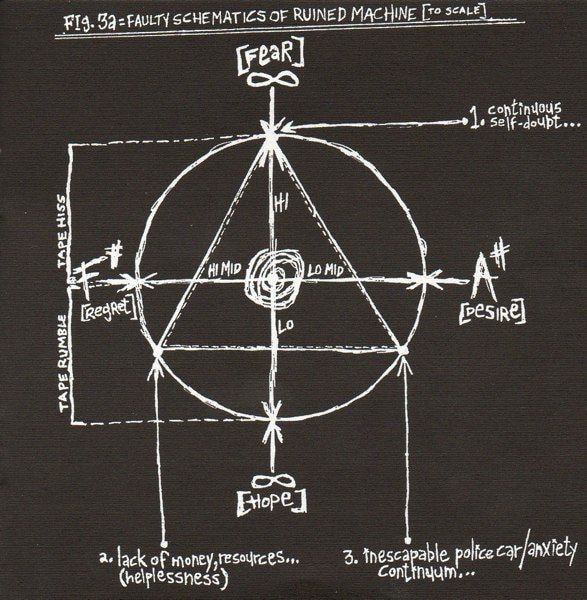 FIG. 3a = FAULTY SCHEMATICS OF RUINED MACHINE [TO SCALE]
[FeaR]
∞
1. continuous
self-doubt...
TAPE HISS
HI
F#
HI MID
LO MID
A#
[RegReT]
[DeSiRe]
LO
TAPE RUMBLE
∞
[HOPe]
2. lack of money, resources...
(helplessness)
3. inescapable police car/anxiety
continuum...